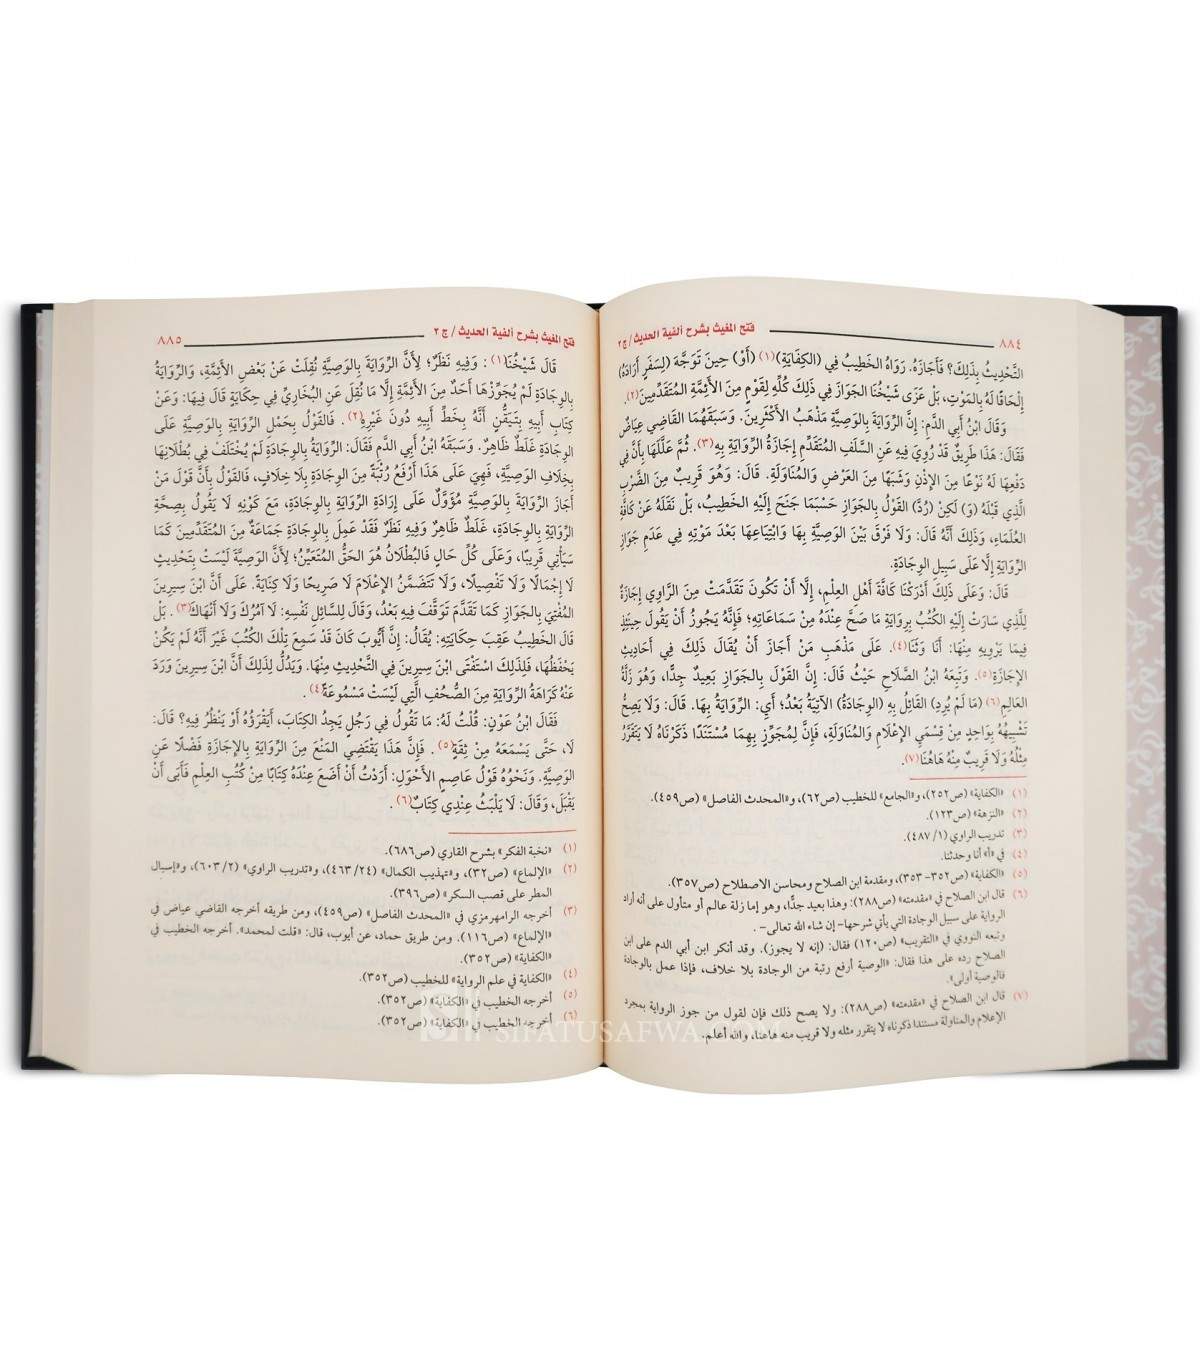 ٨٨٤ فتح المغيث بشرح ألفية الحديث / ج ٢
التَّحْدِيثِ بِذَلِكَ؟ فَأَجَازَهُ. رَوَاهُ الخَطِيبُ فِي (الكِفَايَةِ)(١) (أَوْ) حِينَ تَوَجَّهَ (لِسَفَرٍ أَرَادَهُ)
إِلْحَاقًا لَهُ بِالمَوْتِ، بَلْ عَزَى شَيْخُنَا الجَوَازَ فِي ذَلِكَ كُلِّهِ لِقَوْمٍ مِنَ الأَئِمَّةِ المُتَقَدِّمِينَ(٢).
وَقَالَ ابْنُ أَبِي الدَّمِ: إِنَّ الرِّوَايَةَ بِالوَصِيَّةِ مَذْهَبُ الأَكْثَرِينَ. وَسَبَقَهُمَا القَاضِي عِيَاضٌ
فَقَالَ: هَذَا طَرِيقٌ قَدْ رُوِيَ فِيهِ عَنِ السَّلَفِ المُتَقَدِّمِ إِجَازَةُ الرِّوَايَةِ بِهِ(٣). ثُمَّ عَلَّلَهَا بِأَنَّ فِي
دَفْعِهَا لَهُ نَوْعًا مِنَ الإِذْنِ وَشَبَهًا مِنَ العَرْضِ وَالمُنَاوَلَةِ. قَالَ: وَهُوَ قَرِيبٌ مِنَ الضَّرْبِ
الَّذِي قَبْلَهُ (وَ) لَكِنْ (رُدَّ) القَوْلُ بِالجَوَازِ حَسْبَمَا جَنَحَ إِلَيْهِ الخَطِيبُ، بَلْ نَقَلَهُ عَنْ كَافَّةِ
العُلَمَاءِ، وَذَلِكَ أَنَّهُ قَالَ: وَلَا فَرْقَ بَيْنَ الوَصِيَّةِ بِهَا وَابْتِيَاعِهَا بَعْدَ مَوْتِهِ فِي عَدَمِ جَوَازِ
الرِّوَايَةِ إِلَّا عَلَى سَبِيلِ الوِجَادَةِ.
قَالَ: وَعَلَى ذَلِكَ أَدْرَكْنَا كَافَّةَ أَهْلِ العِلْمِ، إِلَّا أَنْ تَكُونَ تَقَدَّمَتْ مِنَ الرَّاوِي إِجَازَةٌ
لِلَّذِي صَارَتْ إِلَيْهِ الكُتُبُ بِرِوَايَةِ مَا صَحَّ عِنْدَهُ مِنْ سَمَاعَاتِهِ؛ فَإِنَّهُ يَجُوزُ أَنْ يَقُولَ حِينَئِذٍ
فِيمَا يَرْوِيهِ مِنْهَا: أَنَا وَثَنَا(٤). عَلَى مَذْهَبِ مَنْ أَجَازَ أَنْ يُقَالَ ذَلِكَ فِي أَحَادِيثِ
الإِجَازَةِ(٥). وَتَبِعَهُ ابْنُ الصَّلَاحِ حَيْثُ قَالَ: إِنَّ القَوْلَ بِالجَوَازِ بَعِيدٌ جِدًّا، وَهُوَ زَلَّةُ
العَالِمِ(٦) (مَا لَمْ يُرِدِ) القَائِلُ بِهِ (الوِجَادَةَ) الآتِيَةَ بَعْدُ؛ أَيِ: الرِّوَايَةُ بِهَا. قَالَ: وَلَا يَصِحُّ
تَشْبِيهُهُ بِوَاحِدٍ مِنْ قِسْمَيِ الإِعْلَامِ وَالمُنَاوَلَةِ، فَإِنَّ لِمُجَوِّزٍ بِهِمَا مُسْتَنَدًا ذَكَرْنَاهُ لَا يَتَقَرَّرُ
مِثْلُهُ وَلَا قَرِيبٌ مِنْهُ هَاهُنَا(٧).
(١) «الكفاية» (ص٢٥٢)، و«الجامع» للخطيب (ص٦٢)، و«المحدث الفاصل» (ص٤٥٩).
(٢) «النزهة» (ص١٢٣).
(٣) تدريب الراوي (١/ ٤٨٧).
(٤) في «أ» أنا وحدثنا.
(٥) «الكفاية» (ص٣٥٢-٣٥٣)، ومقدمة ابن الصلاح ومحاسن الاصطلاح (ص٣٥٧).
(٦) قال ابن الصلاح في «مقدمته» (ص٢٨٨): وهذا بعيد جدًّا، وهو إما زلة عالم أو متأول على أنه أراد
الرواية على سبيل الوجادة التي يأتي شرحها- إن شاء الله تعالى-.
وتبعه النووي في «التقريب» (ص١٢٠) فقال: (إنه لا يجوز). وقد أنكر ابن أبي الدم على ابن
الصلاح رده على هذا فقال: «الوصية أرفع رتبة من الوجادة بلا خلاف، فإذا عمل بالوجادة
فالوصية أولى».
(٧) قال ابن الصلاح في «مقدمته» (ص٢٨٨): ولا يصح ذلك فإن لقول من جوز الرواية بمجرد
الإعلام والمناولة مستندا ذكرناه لا يتقرر مثله ولا قريب منه هاهنا، والله أعلم.
فتح المغيث بشرح ألفية الحديث / ج ٢ ٨٨٥
قَالَ شَيْخُنَا(١): وَفِيهِ نَظَرٌ؛ لِأَنَّ الرِّوَايَةَ بِالوَصِيَّةِ نُقِلَتْ عَنْ بَعْضِ الأَئِمَّةِ، وَالرِّوَايَةُ
بِالوِجَادَةِ لَمْ يُجَوِّزْهَا أَحَدٌ مِنَ الأَئِمَّةِ إِلَّا مَا نُقِلَ عَنِ البُخَارِيِّ فِي حِكَايَةٍ قَالَ فِيهَا: وَعَنْ
كِتَابِ أَبِيهِ بِتَيَقُّنٍ أَنَّهُ بِخَطِّ أَبِيهِ دُونَ غَيْرِهِ(٢). فَالقَوْلُ بِحَمْلِ الرِّوَايَةِ بِالوَصِيَّةِ عَلَى
الوِجَادَةِ غَلَطٌ ظَاهِرٌ. وَسَبَقَهُ ابْنُ أَبِي الدَّمِ فَقَالَ: الرِّوَايَةُ بِالوِجَادَةِ لَمْ يُخْتَلَفْ فِي بُطْلَانِهَا
بِخِلَافِ الوَصِيَّةِ، فَهِيَ عَلَى هَذَا أَرْفَعُ رُتْبَةً مِنَ الوِجَادَةِ بِلَا خِلَافٍ، فَالقَوْلُ بِأَنَّ قَوْلَ مَنْ
أَجَازَ الرِّوَايَةَ بِالوَصِيَّةِ مُؤَوَّلٌ عَلَى إِرَادَةِ الرِّوَايَةِ بِالوِجَادَةِ، مَعَ كَوْنِهِ لَا يَقُولُ بِصِحَّةِ
الرِّوَايَةِ بِالوِجَادَةِ، غَلَطٌ ظَاهِرٌ وَفِيهِ نَظَرٌ فَقَدْ عَمِلَ بِالوِجَادَةِ جَمَاعَةٌ مِنَ المُتَقَدِّمِينَ كَمَا
سَيَأْتِي قَرِيبًا، وَعَلَى كُلِّ حَالٍ فَالبُطْلَانُ هُوَ الحَقُّ المُتَعَيِّنُ؛ لِأَنَّ الوَصِيَّةَ لَيْسَتْ بِتَحْدِيثٍ
لَا إِجْمَالًا وَلَا تَفْصِيلًا، وَلَا تَتَضَمَّنُ الإِعْلَامَ لَا صَرِيحًا وَلَا كِنَايَةً. عَلَى أَنَّ ابْنَ سِيرِينَ
المُفْتِيَ بِالجَوَازِ كَمَا تَقَدَّمَ تَوَقَّفَ فِيهِ بَعْدُ، وَقَالَ لِلسَّائِلِ نَفْسِهِ: لَا آمُرُكَ وَلَا أَنْهَاكَ(٣). بَلْ
قَالَ الخَطِيبُ عَقِبَ حِكَايَتِهِ: يُقَالُ: إِنَّ أَيُّوبَ كَانَ قَدْ سَمِعَ تِلْكَ الكُتُبَ غَيْرَ أَنَّهُ لَمْ يَكُنْ
يَحْفَظُهَا، فَلِذَلِكَ اسْتَفْتَى ابْنَ سِيرِينَ فِي التَّحْدِيثِ مِنْهَا. وَيَدُلُّ لِذَلِكَ أَنَّ ابْنَ سِيرِينَ وَرَدَ
عَنْهُ كَرَاهَةُ الرِّوَايَةِ مِنَ الصُّحُفِ الَّتِي لَيْسَتْ مَسْمُوعَةً(٤).
فَقَالَ ابْنُ عَوْنٍ: قُلْتُ لَهُ: مَا تَقُولُ فِي رَجُلٍ يَجِدُ الكِتَابَ، أَيَقْرَؤُهُ أَوْ يَنْظُرُ فِيهِ؟ قَالَ:
لَا، حَتَّى يَسْمَعَهُ مِنْ ثِقَةٍ(٥). فَإِنَّ هَذَا يَقْتَضِي المَنْعَ مِنَ الرِّوَايَةِ بِالإِجَازَةِ فَضْلًا عَنِ
الوَصِيَّةِ. وَنَحْوُهُ قَوْلُ عَاصِمٍ الأَحْوَلِ: أَرَدْتُ أَنْ أَضَعَ عِنْدَهُ كِتَابًا مِنْ كُتُبِ العِلْمِ فَأَبَى أَنْ
يَقْبَلَ، وَقَالَ: لَا يَلْبَثُ عِنْدِي كِتَابٌ(٦).
(١) «نخبة الفكر» بشرح القاري (ص٦٨٦).
(٢) «الإلماع» (ص٣٢)، و«تهذيب الكمال» (٢٤/ ٤٦٣)، و«تدريب الراوي» (٢/ ٦٠٣)، و«إسبال
المطر على قصب السكر» (ص٣٩٦).
(٣) أخرجه الرامهرمزي في «المحدث الفاصل» (ص٤٥٩)، ومن طريقه أخرجه القاضي عياض في
«الإلماع» (ص١١٦). ومن طريق حماد، عن أيوب، قال: «قلت لمحمد». أخرجه الخطيب في
«الكفاية» (ص٣٥٢).
(٤) «الكفاية في علم الرواية» للخطيب (ص٣٥٢).
(٥) أخرجه الخطيب في «الكفاية» (ص٣٥٢).
(٦) أخرجه الخطيب في «الكفاية» (ص٣٥٢).
SIFATUSAFWA.COM